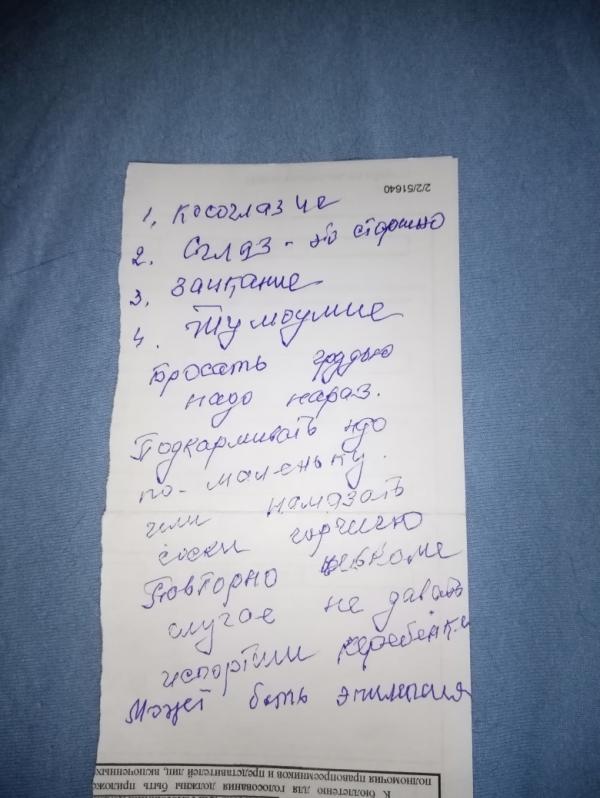 2/2/51640
1, косоглазие
2. Сглаз - это страшно
3. заикание
4. Тумоумие
Бросать грудью
надо нараз.
Подкармивать ндо
по-маленьку.
или намазать
соски горчицю
Повторно
случае не давать
испортили
Может быть эпилепсия
полномочия правопреемников и представителей лиц, включенных
К бюллетеню для голосования должны быть прилож